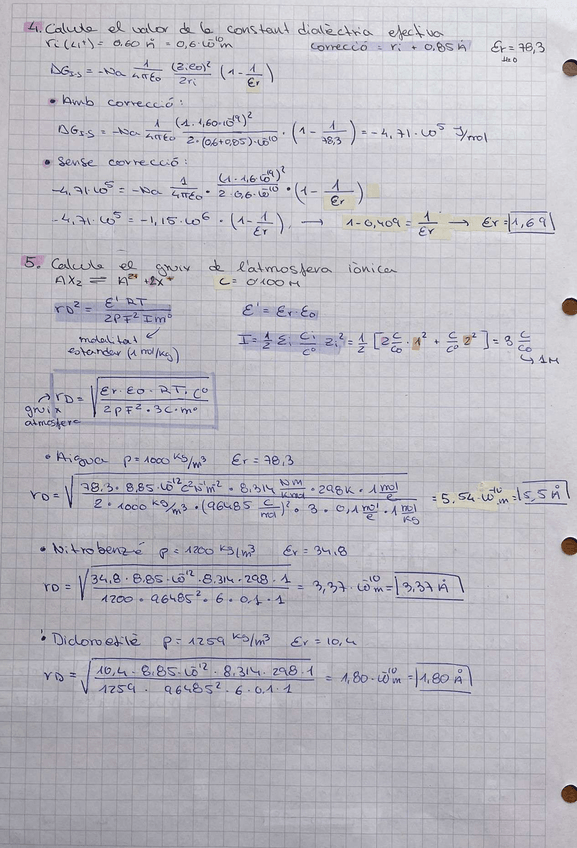 4. Calcule el valor de la constant dialèctria efectiva
ri(Li⁺) = 0,60 Å = 0,6·10⁻¹⁰ m correcció = ri + 0,85 Å Er = 78,3 H₂O
ΔG I-S = -Na 1/4πε0 (z·e0)²/2ri (1 - 1/Er)
• Amb correcció:
ΔG I-S = -Na 1/4πε0 (1·1,60·10⁻¹⁹)²/2·(0,6+0,85)·10⁻¹⁰ · (1 - 1/78,3) = -4,71·10⁵ J/mol
• Sense correcció:
-4,71·10⁵ = -Na 1/4πε0 · (1·1,6·10⁻¹⁹)²/2·0,6·10⁻¹⁰ · (1 - 1/Er)
-4,71·10⁵ = -1,15·10⁶ · (1 - 1/Er) → 1-0,409 = 1/Er → Er = 1,69
5. Calcule el gruix de l'atmosfera iònica
AX₂ ⇌ A²⁺ + 2X⁻ C = 0'100 M
rD² = E' RT/2ρF² I m⁰ E' = Er·E0
molalitat estandar (1 mol/kg) I = 1/2 Σi Ci/C⁰ zi² = 1/2 [2 C/C0 · 1² + C/C⁰ 2²] = 3 C/C0 ↳ 1M
→ rD = √(Er·E0·RT·C⁰/2ρF²·3C·m⁰)
gruix
atmosfera
• Aigua ρ = 1000 kg/m³ Er = 78,3
rD = √(78,3 · 8,85·10⁻¹² C²N⁻¹m⁻² · 8,314 Nm/Kmol · 298K · 1 mol/l / 2 · 1000 kg/m³ · (96485 C/mol)² · 3 · 0,1 mol/l · 1 mol/kg) = 5,54·10⁻¹⁰ m = 5,5 Å
• Nitrobenzé ρ = 1200 kg/m³ Er = 34,8
rD = √(34,8 · 8,85·10⁻¹² · 8,314 · 298 · 1 / 1200 · 96485² · 6 · 0,1 · 1) = 3,37·10⁻¹⁰ m = 3,37 Å
• Dicloroetilè ρ = 1259 kg/m³ Er = 10,4
rD = √(10,4 · 8,85·10⁻¹² · 8,314 · 298 · 1 / 1259 · 96485² · 6 · 0,1 · 1) = 1,80·10⁻¹⁰ m = 1,80 Å